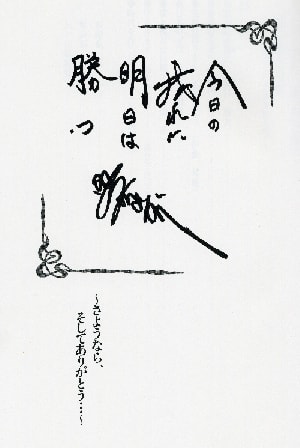 今日の
我れに
明日は
勝つ
～さようなら、
そしてありがとう…～